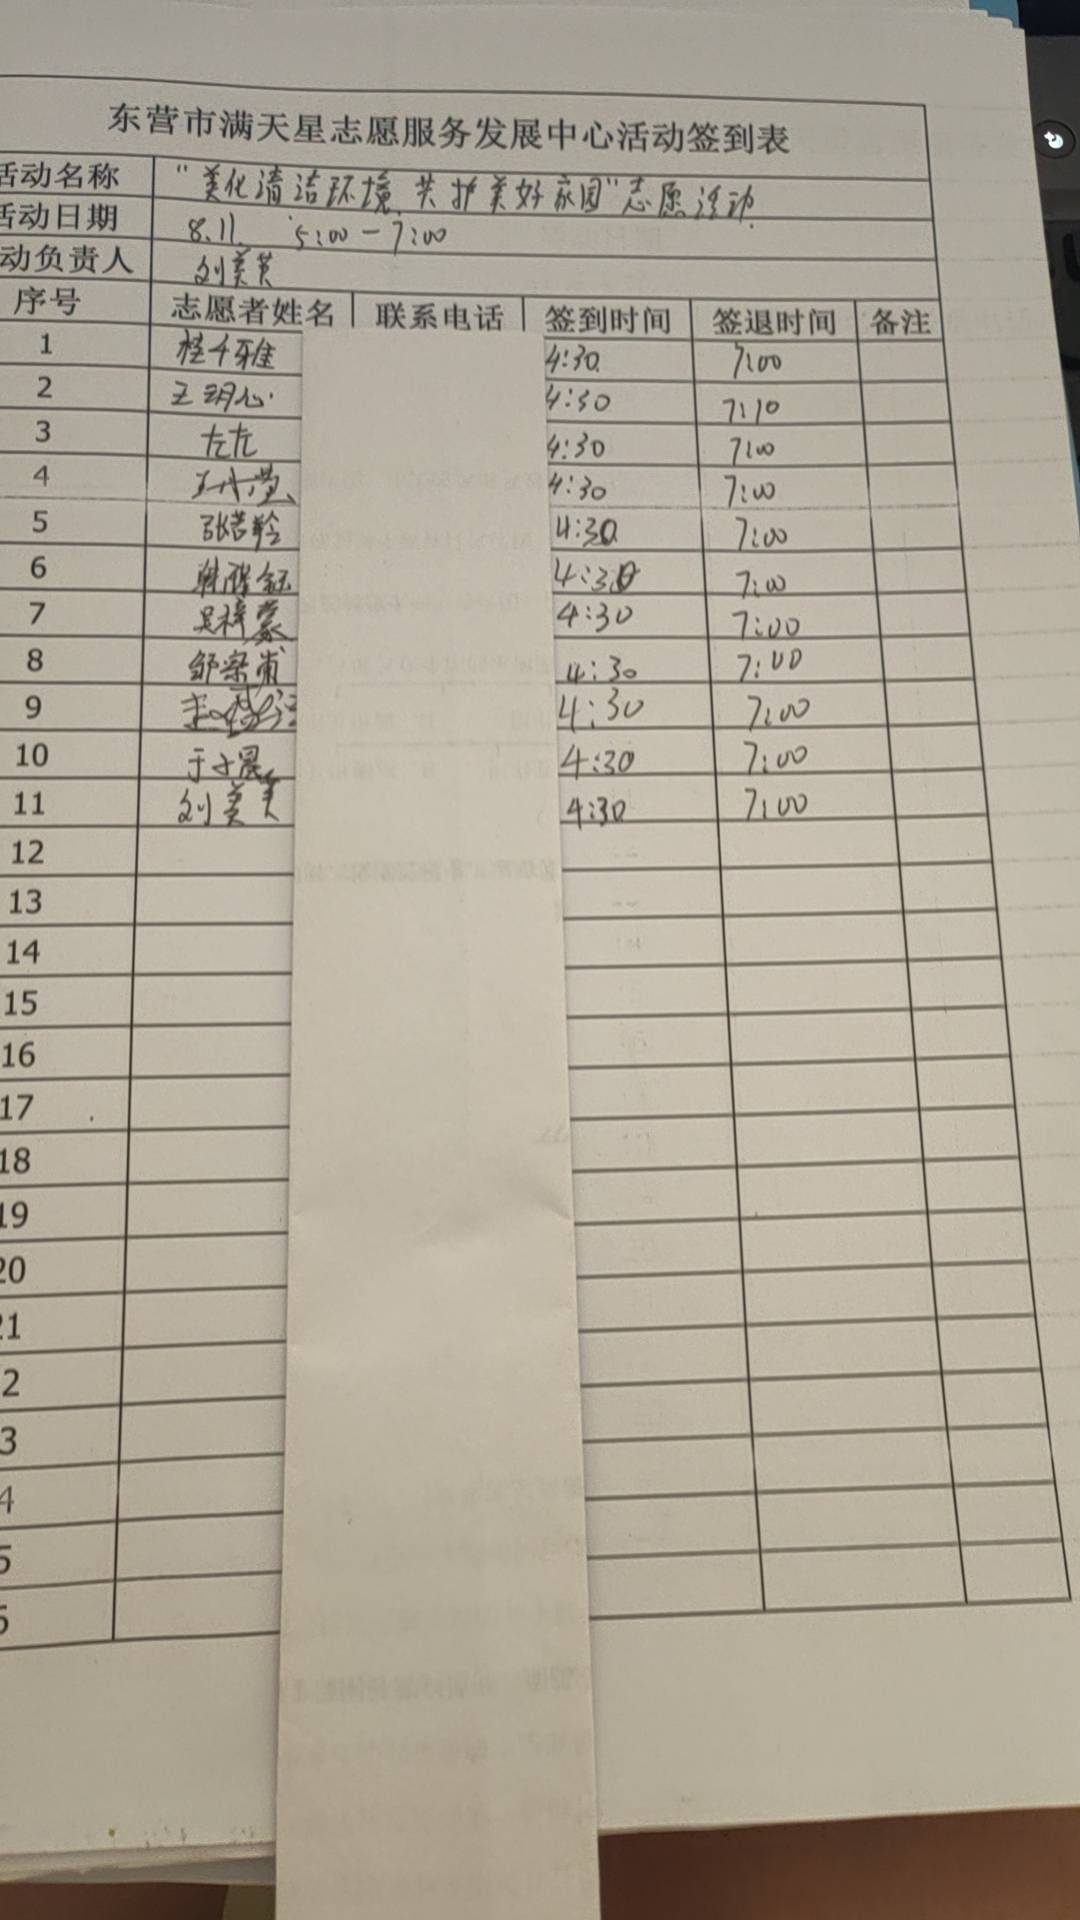 东营市满天星志愿服务发展中心活动签到表
活动名称 "美化清洁环境 共护美好家园"志愿活动
活动日期 8.11 5:00-7:00
动负责人 刘美英
序号 志愿者姓名 联系电话 签到时间 签退时间 备注
1 桂千雅 4:30 7:00
2 王玥心 4:30 7:10
3 左尤 4:30 7:00
4 4:30 7:00
5 4:30 7:00
6 4:30 7:00
7 吴梓豪 4:30 7:00
8 邹宗甫 4:30 7:00
9 4:30 7:00
10 于子晨 4:30 7:00
11 刘美英 4:30 7:00
12
13
14
15
16
17
18
19
20
21
2
3
4
5
6